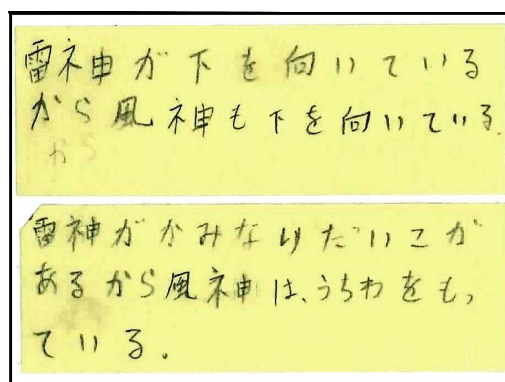 雷神が下を向いている
から風神も下を向いている。
から
雷神がかみなりだいこが
あるから風神は、うちわをもっ
ている。